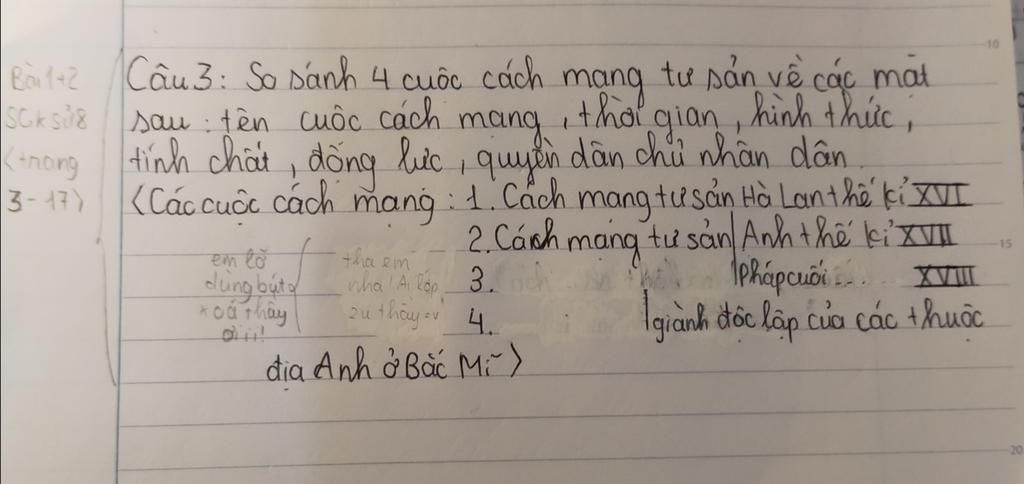 Bài 1+2
SGK sử 8
(trang
3-17)
Câu 3: So sánh 4 cuộc cách mạng tư sản về các mặt
sau: tên cuộc cách mạng, thời gian, hình thức,
tính chất, động lực, quyền dân chủ nhân dân.
(Các cuộc cách mạng: 1. Cách mạng tư sản Hà Lan thế kỉ XVI
2. Cách mạng tư sản Anh thế kỉ XVII
3. Pháp cuối ... XVIII
4. giành độc lập của các thuộc
địa Anh ở Bắc Mĩ)
em lỡ
dùng bút
xoá thầy
ơi iii!
tha em
nha! Ai lớp
zu thầy =v